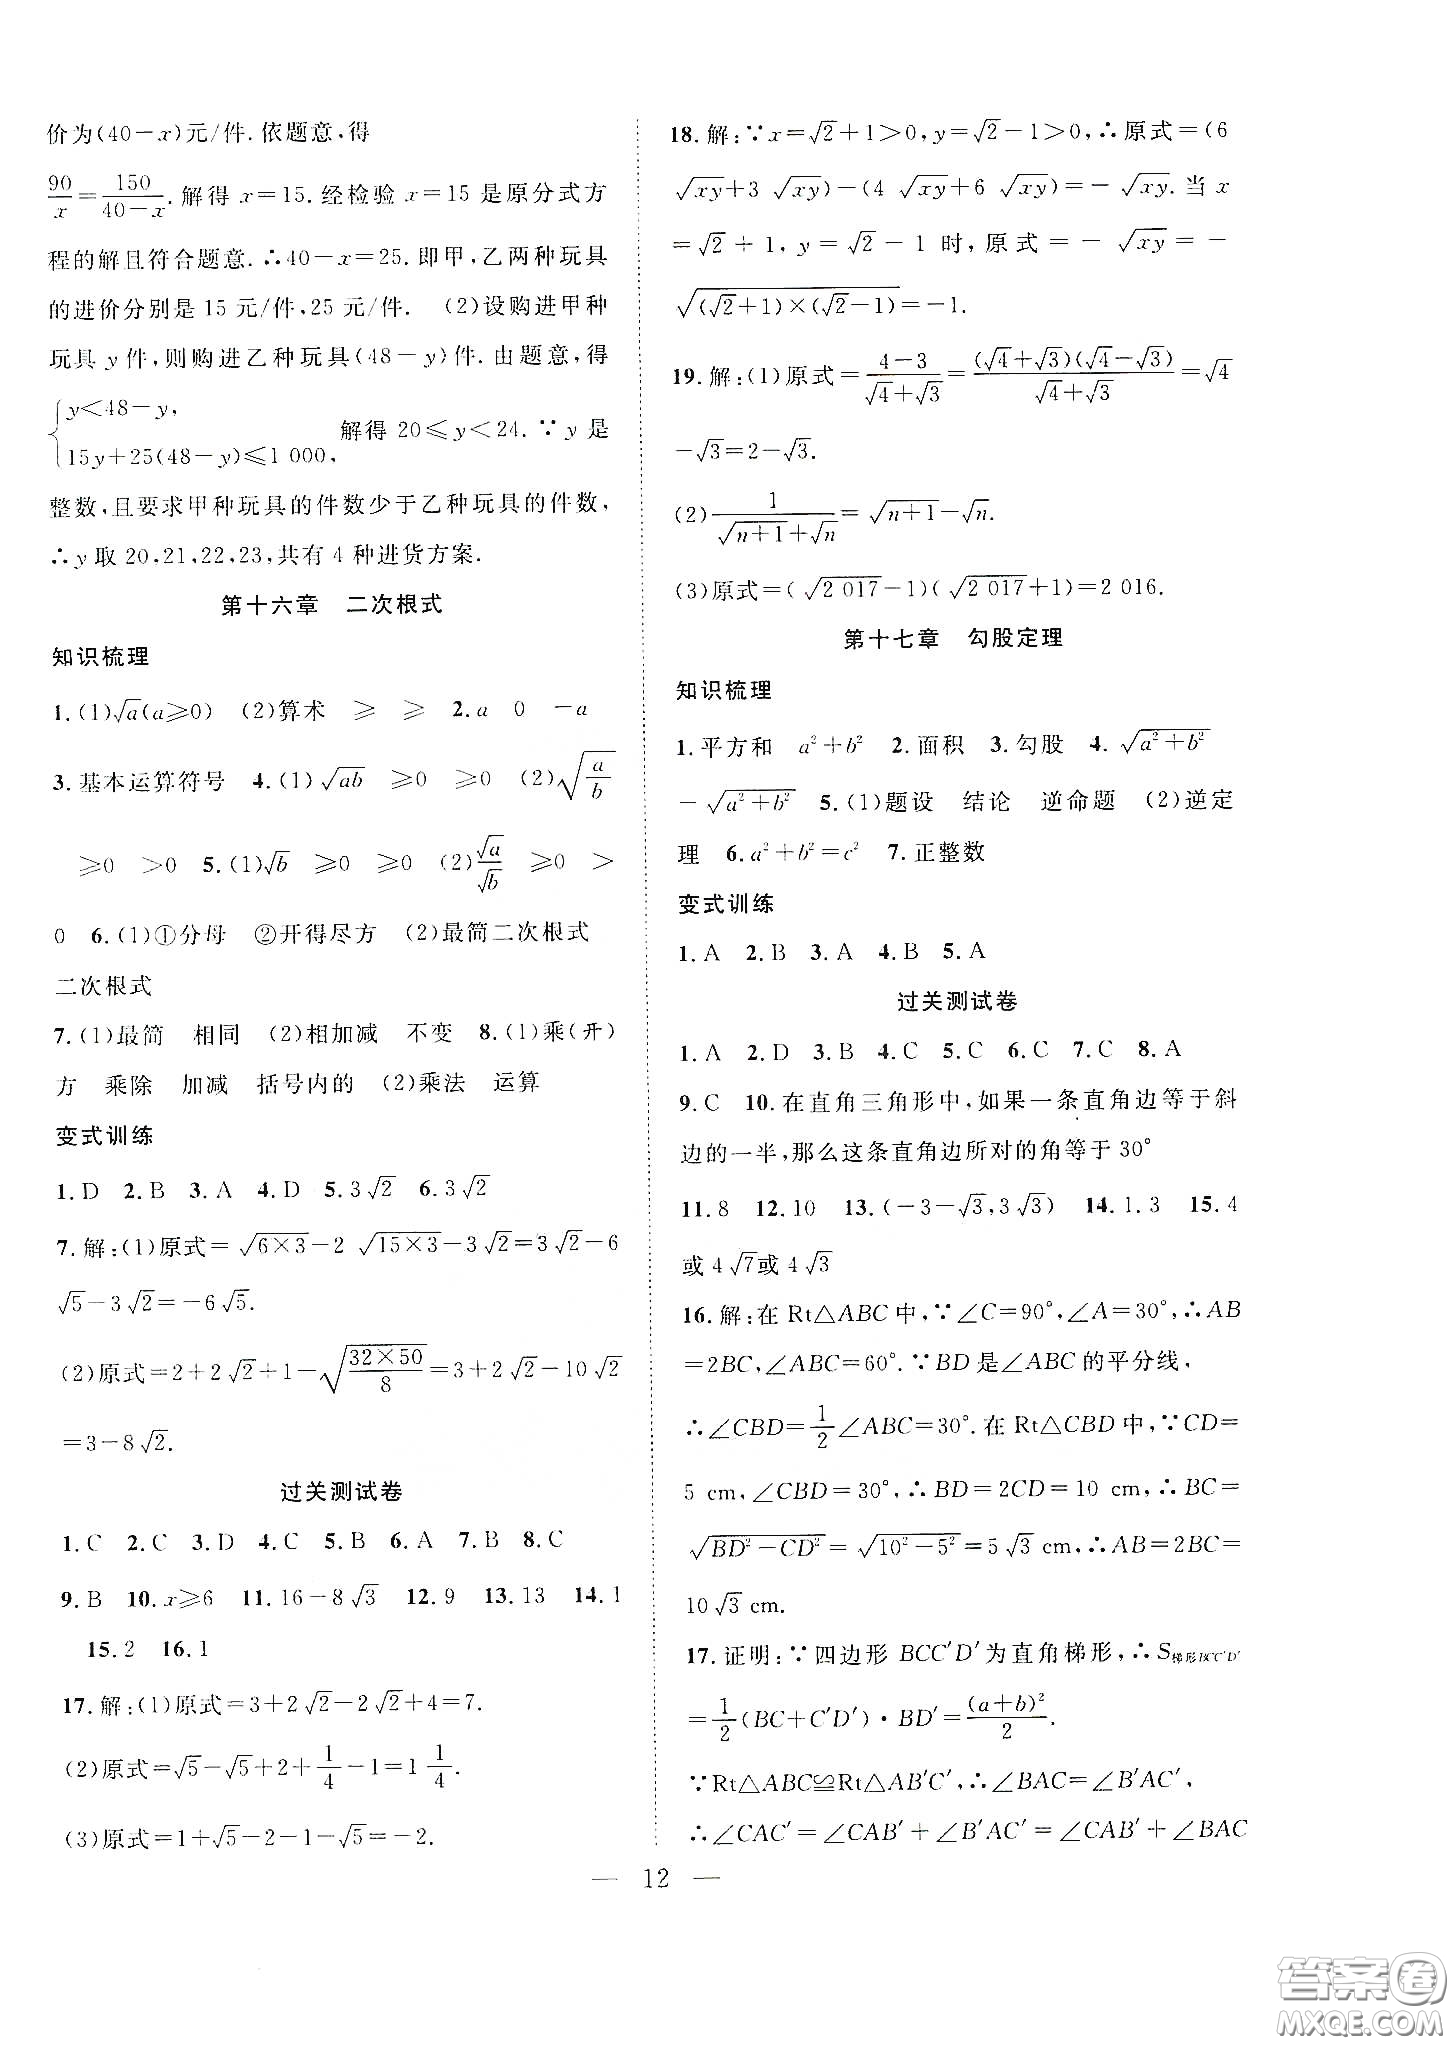 价为(40-x)元/件.依题意,得
90/x=150/(40-x).解得 x=15.经检验 x=15 是原分式方
程的解且符合题意.∴40-x=25.即甲,乙两种玩具
的进价分别是 15 元/件,25 元/件. (2)设购进甲种
玩具 y 件,则购进乙种玩具(48-y)件.由题意,得
{y<48-y,
15y+25(48-y)≤1 000, 解得 20≤y<24.∵y 是
整数,且要求甲种玩具的件数少于乙种玩具的件数,
∴y 取 20,21,22,23,共有 4 种进货方案.
第十六章 二次根式
知识梳理
1.(1)√a(a≥0) (2)算术 ≥ ≥ 2.a 0 -a
3.基本运算符号 4.(1)√ab ≥0 ≥0 (2)√(a/b)
≥0 >0 5.(1)√b ≥0 ≥0 (2)√a/√b ≥0 >
0 6.(1)①分母 ②开得尽方 (2)最简二次根式
二次根式
7.(1)最简 相同 (2)相加减 不变 8.(1)乘(开)
方 乘除 加减 括号内的 (2)乘法 运算
变式训练
1.D 2.B 3.A 4.D 5.3√2 6.3√2
7.解:(1)原式=√(6×3)-2√(15×3)-3√2=3√2-6
√5-3√2=-6√5.
(2)原式=2+2√2+1-√(32×50/8)=3+2√2-10√2
=3-8√2.
过关测试卷
1.C 2.C 3.D 4.C 5.B 6.A 7.B 8.C
9.B 10.x≥6 11.16-8√3 12.9 13.13 14.1
15.2 16.1
17.解:(1)原式=3+2√2-2√2+4=7.
(2)原式=√5-√5+2+1/4-1=1 1/4.
(3)原式=1+√5-2-1-√5=-2.
18.解:∵x=√2+1>0,y=√2-1>0,∴原式=(6
√xy+3√xy)-(4√xy+6√xy)=-√xy.当 x
=√2+1,y=√2-1 时,原式=-√xy=-
√((√2+1)×(√2-1))=-1.
19.解:(1)原式=(4-3)/(√4+√3)=(√4+√3)(√4-√3)/(√4+√3)=√4
-√3=2-√3.
(2)1/(√(n+1)+√n)=√(n+1)-√n.
(3)原式=(√2 017-1)(√2 017+1)=2 016.
第十七章 勾股定理
知识梳理
1.平方和 a²+b² 2.面积 3.勾股 4.√(a²+b²)
-√(a²+b²) 5.(1)题设 结论 逆命题 (2)逆定
理 6.a²+b²=c² 7.正整数
变式训练
1.A 2.B 3.A 4.B 5.A
过关测试卷
1.A 2.D 3.B 4.C 5.C 6.C 7.C 8.A
9.C 10.在直角三角形中,如果一条直角边等于斜
边的一半,那么这条直角边所对的角等于 30°
11.8 12.10 13.(-3-√3,3√3) 14.1.3 15.4
或 4√7或 4√3
16.解:在 Rt△ABC 中,∵∠C=90°,∠A=30°,∴AB
=2BC,∠ABC=60°.∵BD 是∠ABC 的平分线,
∴∠CBD=1/2∠ABC=30°.在 Rt△CBD 中,∵CD=
5 cm,∠CBD=30°,∴BD=2CD=10 cm,∴BC=
√(BD²-CD²)=√(10²-5²)=5√3 cm,∴AB=2BC=
10√3 cm.
17.证明:∵四边形 BCC′D′为直角梯形,∴S梯形BCC′D′
=1/2(BC+C′D′)·BD′=(a+b)²/2.
∵Rt△ABC≌Rt△AB′C′,∴∠BAC=∠B′AC′,
∴∠CAC′=∠CAB′+∠B′AC′=∠CAB′+∠BAC
— 12 —
答案圈
MXQE.COM